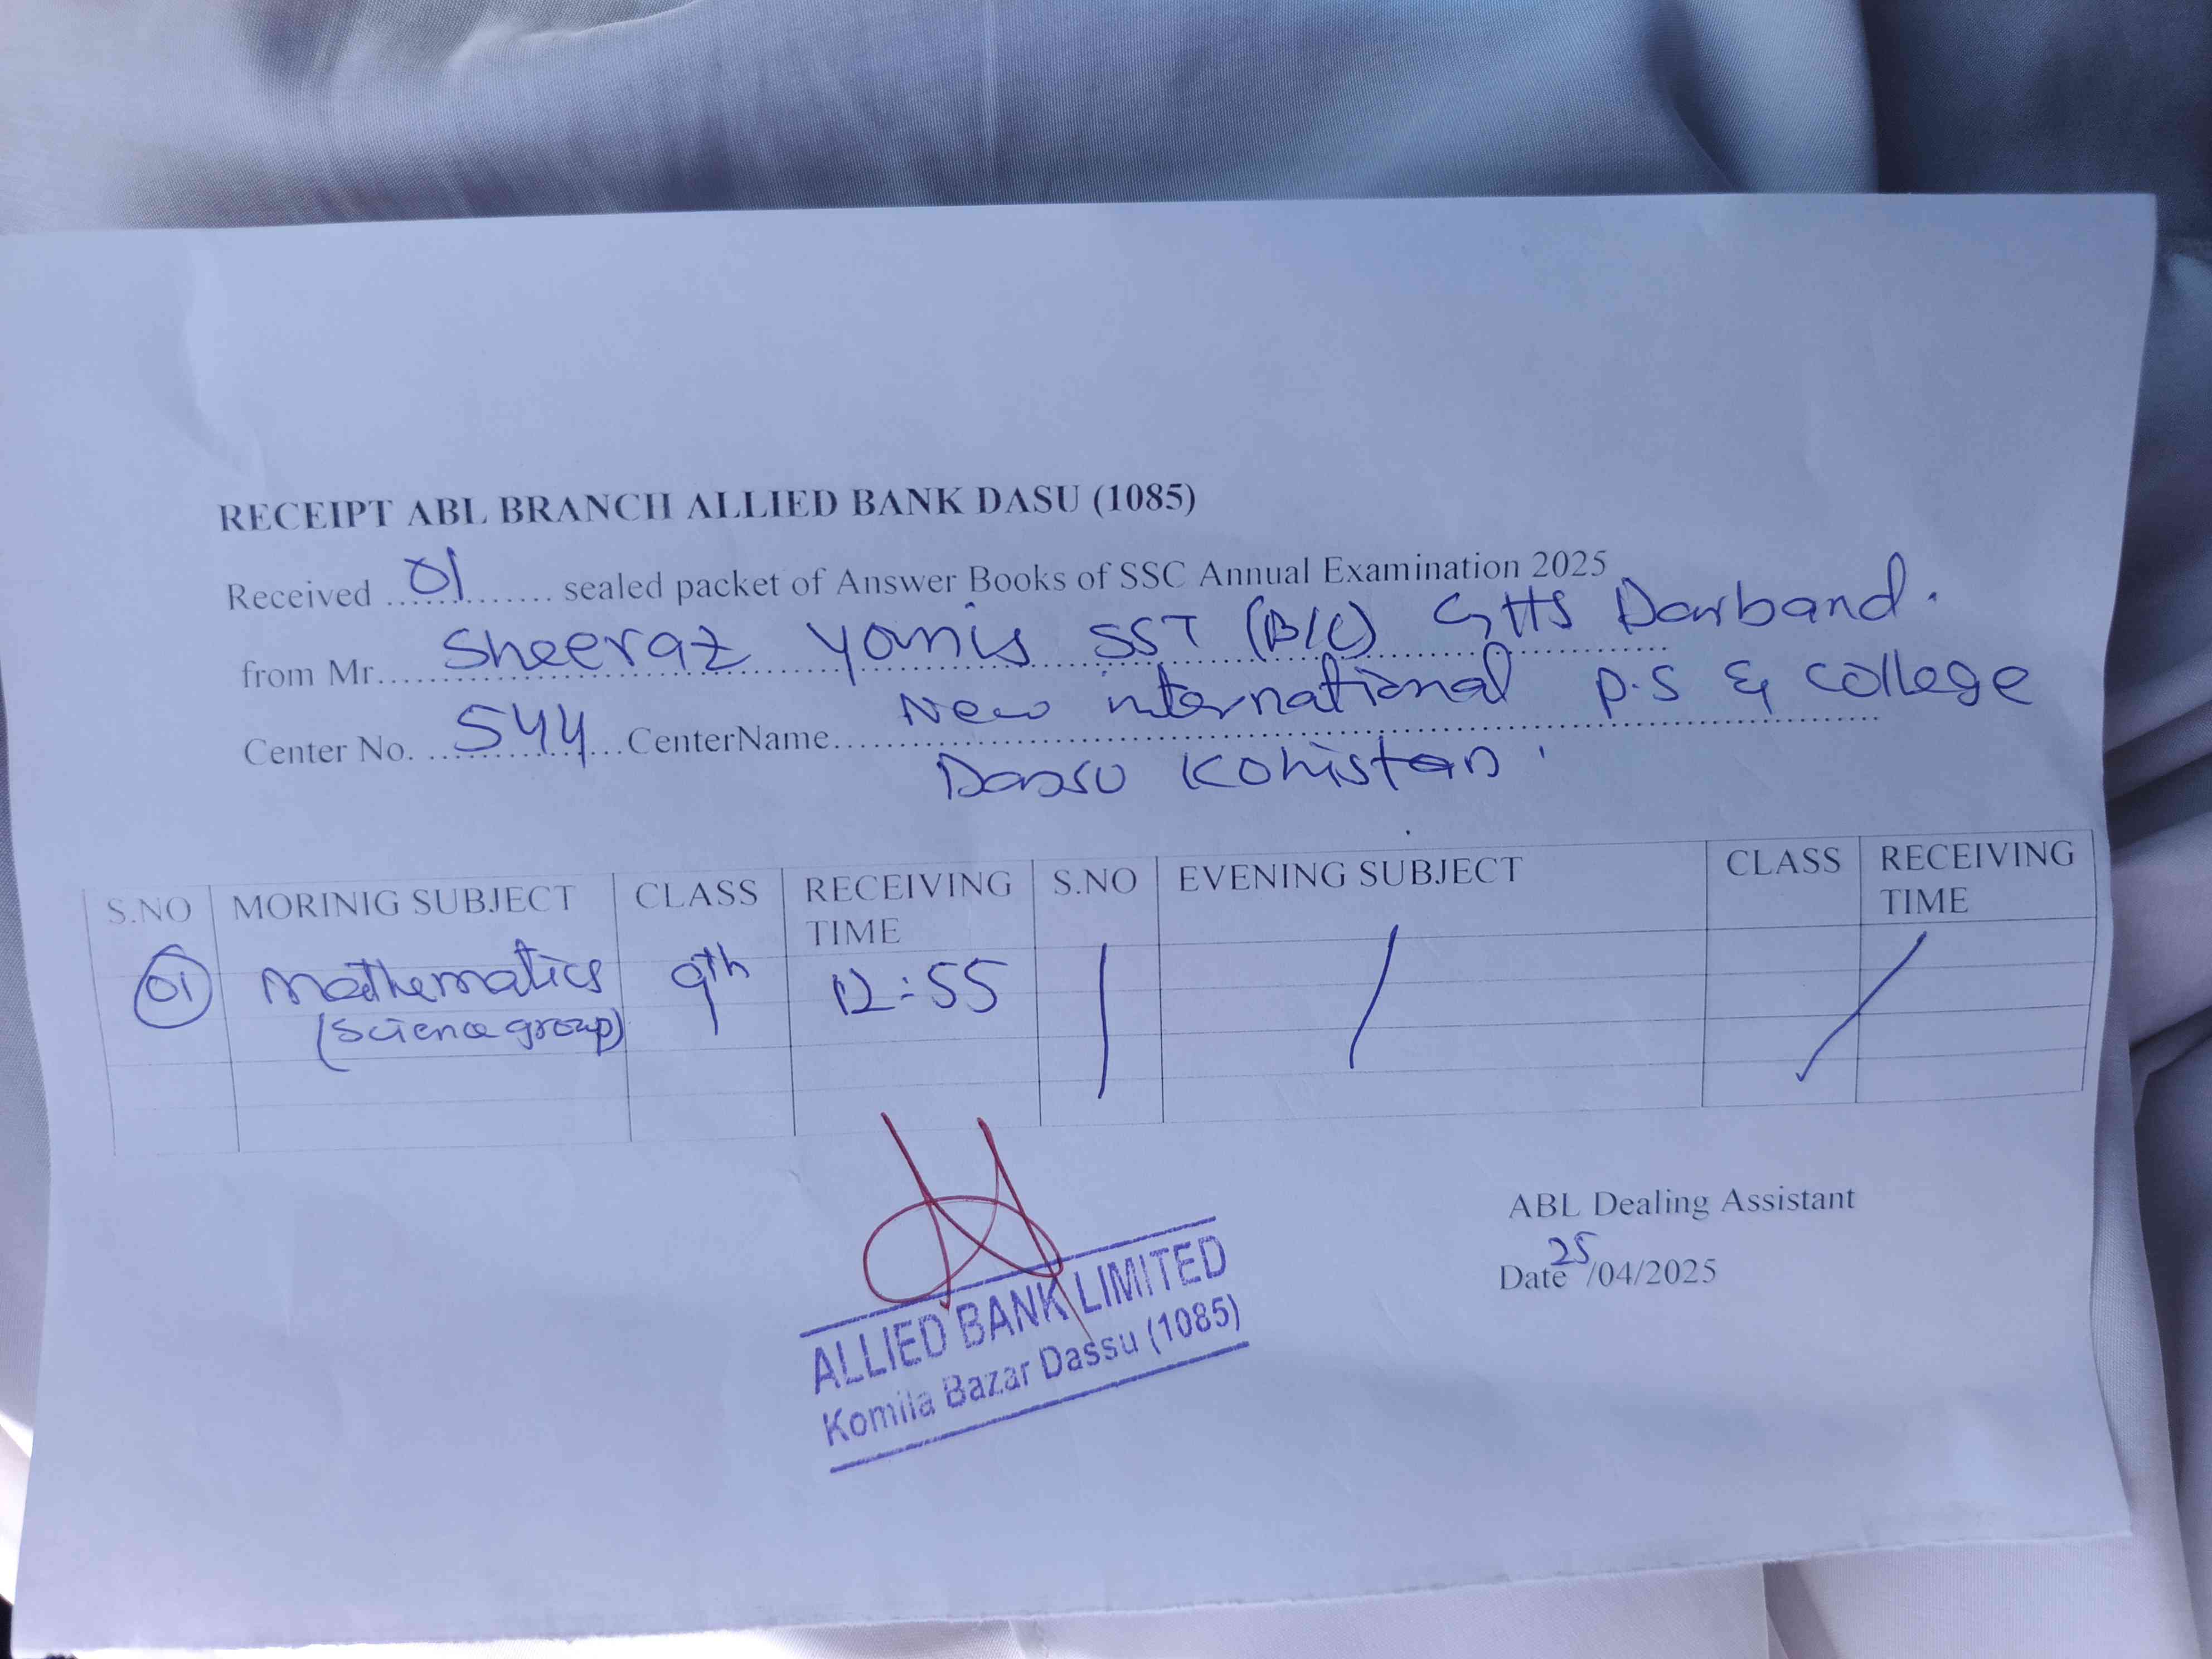 RECEIPT ABL BRANCH ALLIED BANK DASU (1085)
Received ....01.... sealed packet of Answer Books of SSC Annual Examination 2025
from Mr. Sheeraz Yonis SST (B/C) GHS Darband.
Center No. 544 CenterName New international P.S & College
Dassu Kohistan.
S.NO MORINIG SUBJECT CLASS RECEIVING TIME S.NO EVENING SUBJECT CLASS RECEIVING TIME
01 Mathematics 9th 12:55
(Science group)
ABL Dealing Assistant
Date 25/04/2025
ALLIED BANK LIMITED
Komila Bazar Dassu (1085)